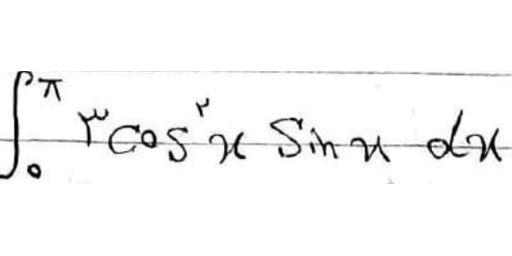 ∫₀^π ۳cos^۲x Sinx dx